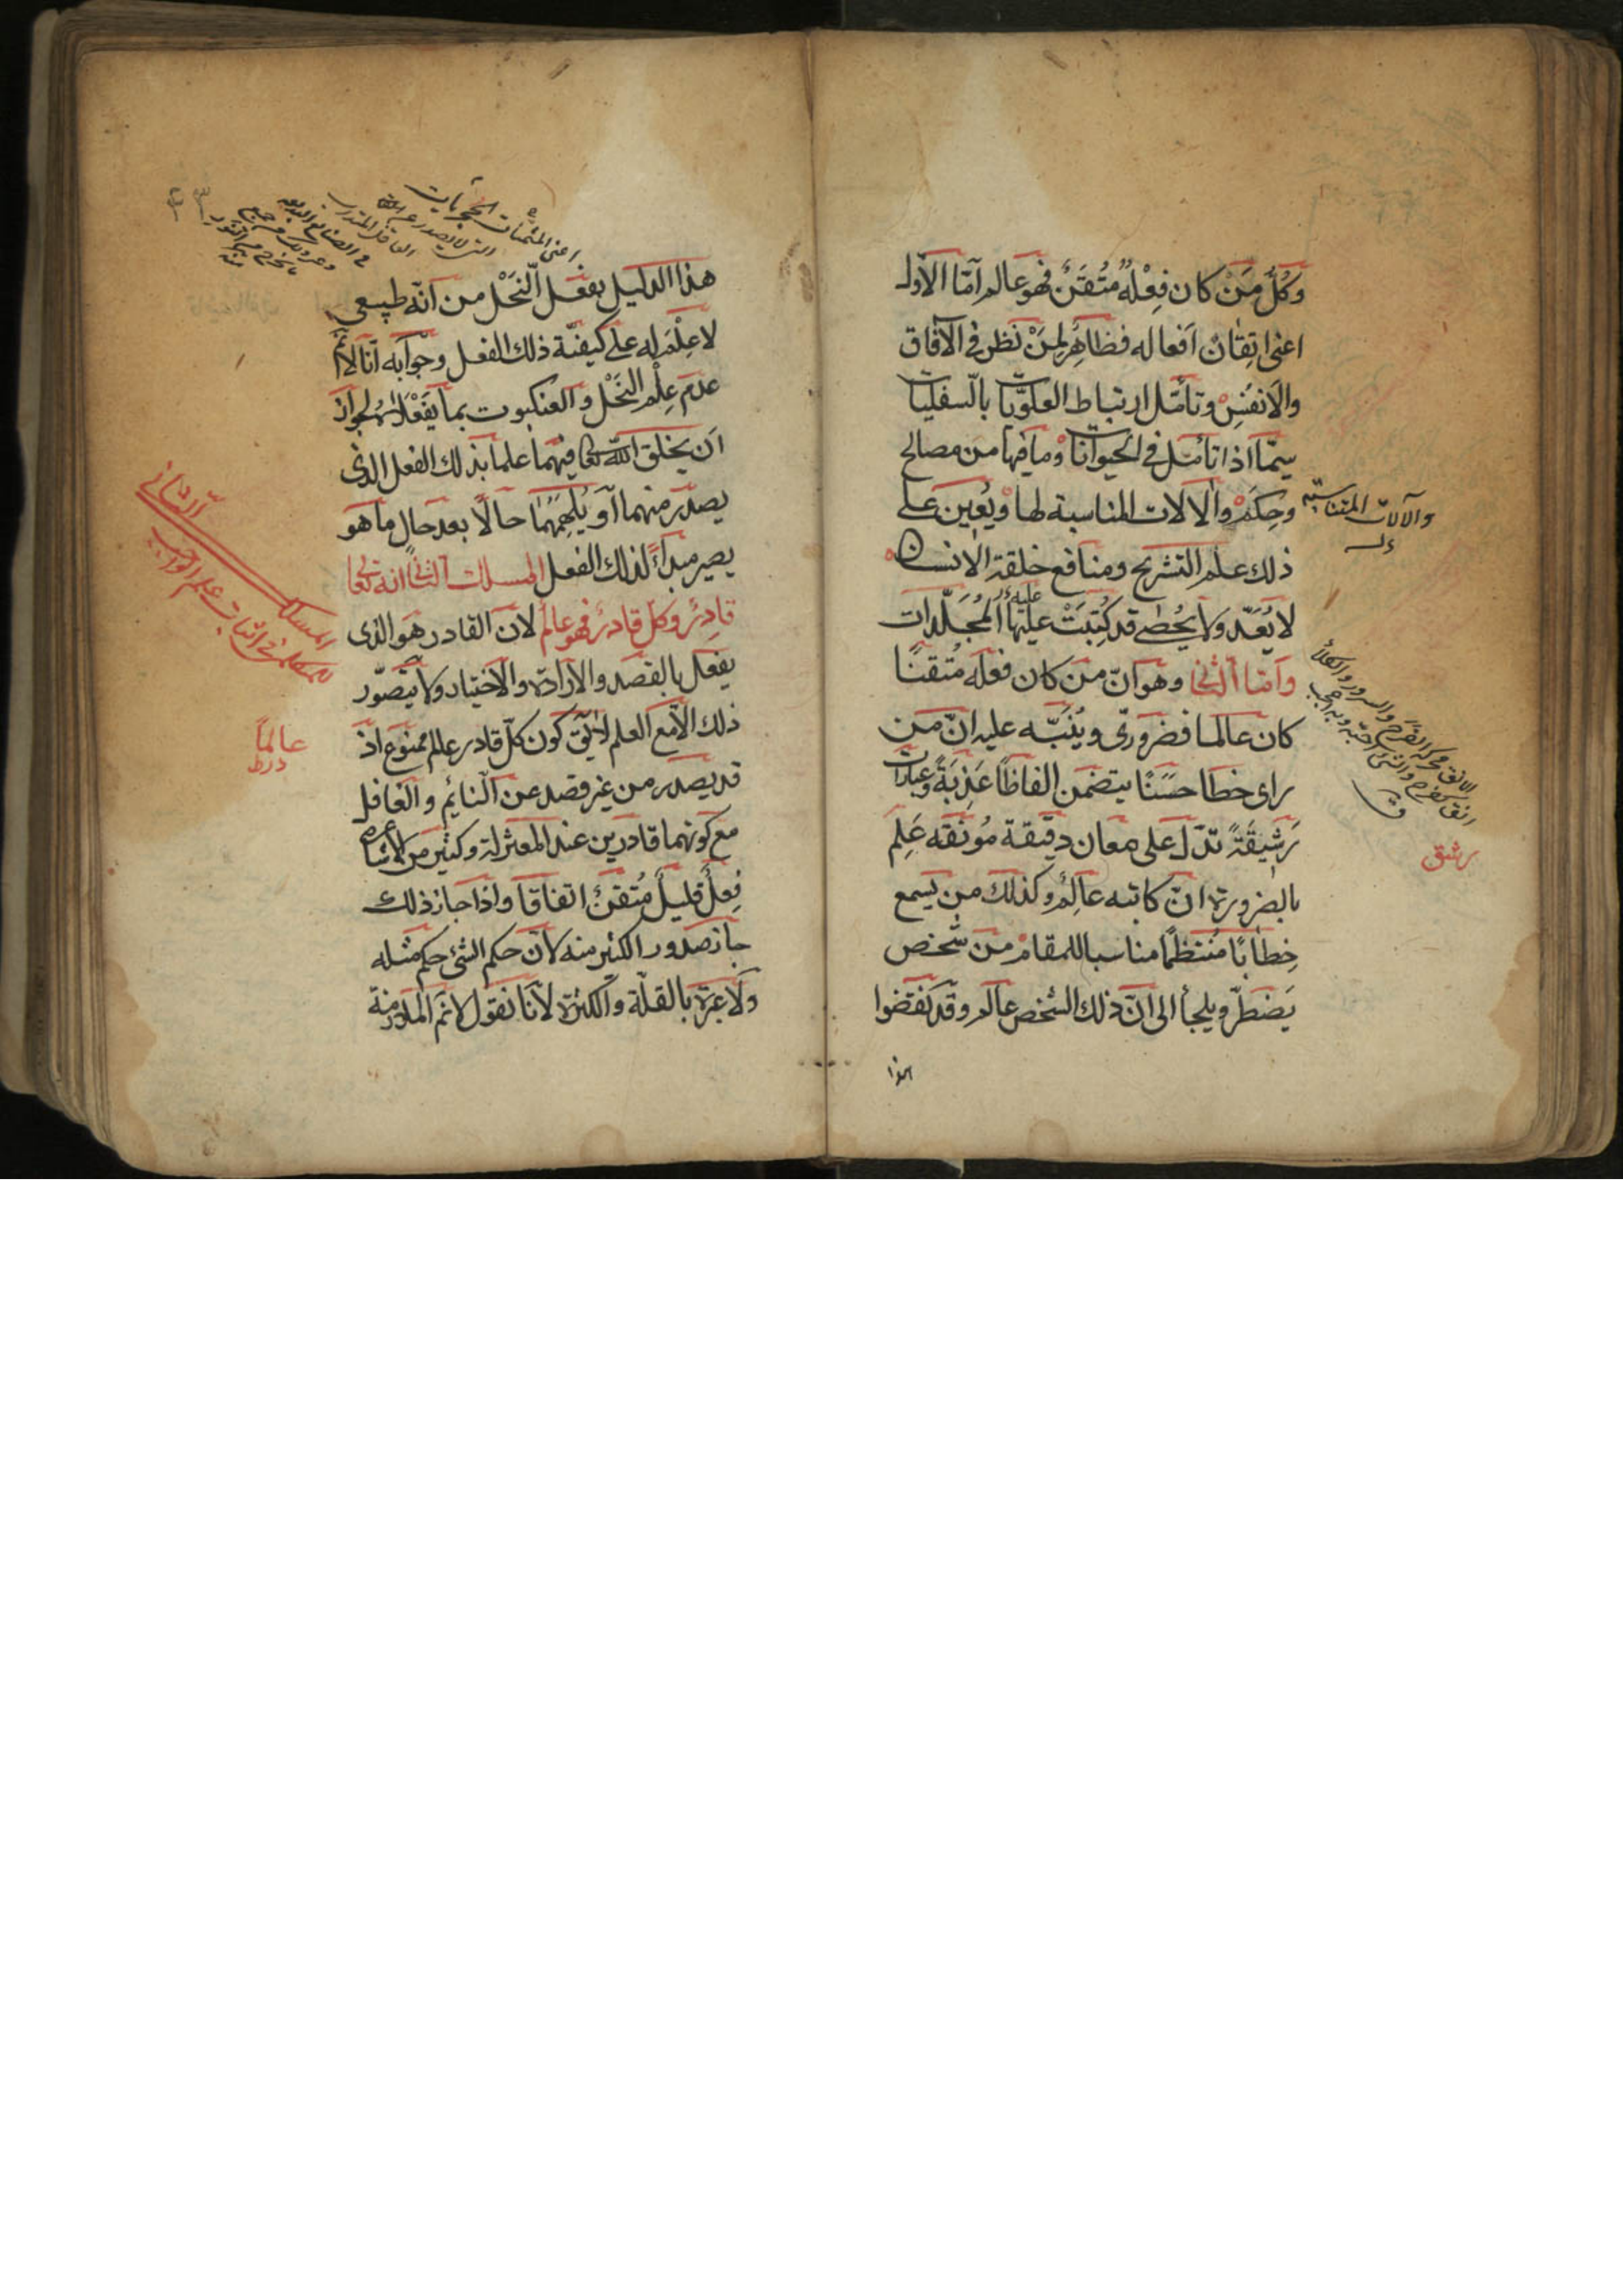 وكُلُّ مَنْ كان فِعْلُهُ مُتْقَنٌ فهو عالم اَمّا الاَوّل
اعنى اِتقانُ اَفعاله فظاهِرٌ لِمَنْ نَظر فى الآفاق
والاَنفُسِ وتأمّل ارتباط العلويّات بالسفليات
سِيّما اذا تأمّل فى الحيوانات وما فيها من مصالح
وحِكَم والالات المناسبة لها ويُعِين على
ذلك علم التشريح ومنافع خلقة الانسان
لا يُعَدّ ولا يُحْصٰى قد كُتِبَتْ عليها المُجَلّدات
عليه
واَمّا الثانى وهو انّ من كان فعله مُتقنًا
كان عالما فضرورىّ ويُنَبّه عليه انّ من
راى خطا حَسَنًا يتضمن الفاظًا عَذِبَةً وعبارات
رَشِيقَةً تدلّ على معان دقيقة مُونَقه عَلِمَ
بالضرورة انّ كاتبه عالِمٌ وكذلك من يسمع
خِطابًا مُنتظمًا مناسبا للمقام من شخص
يَضطرّ ويلجأ الى انّ ذلك الشخص عالم وقد نَقَضوا
هذا
والآلات المتناسبة
رشق
هذا الدليل بفعل النَّحْل من انّه طبيعى
لا عِلْمَ له على كيفيّة ذلك الفعل وجوابه اَنّا لا نم
عدم عِلْم النَّحْل والعنكبوت بما يَفْعَلانه لجواز
اَن يخلق اللّه تعا فيهما علما بذلك الفعل الذى
يصدر منهما اَو يُلهِمَهُما حالًا بعد حالٍ ما هو
يصير مبدأً لذلك الفعل المسلك الثانى انه تعا
قادِرٌ وكلّ قادرٌ فهو عالم لانّ القادر هو الذى
يفعل بالقصد والارادة والاختيار ولا يتصوّر
ذلك الاّ مع العلم لا يقَ كون كلّ قادر عالم ممنوع اذ
قد يصدر من غير قصد عن النائم والغافل
مع كونهما قادرين عند المعتزلة وكثير من الاشاعرة
فِعلٌ قليلٌ مُتقنٌ اتفاقا واذا جاز ذلك
جاز صدور الكثير منه لانّ حكم الشئ حكم مثله
ولا عبرة بالقلّة والكثرة لاَنّا نقول لا نم الملازمة
المسلك الثانى
للمتكلمين فى اثبات علم الواجب
عالمًا